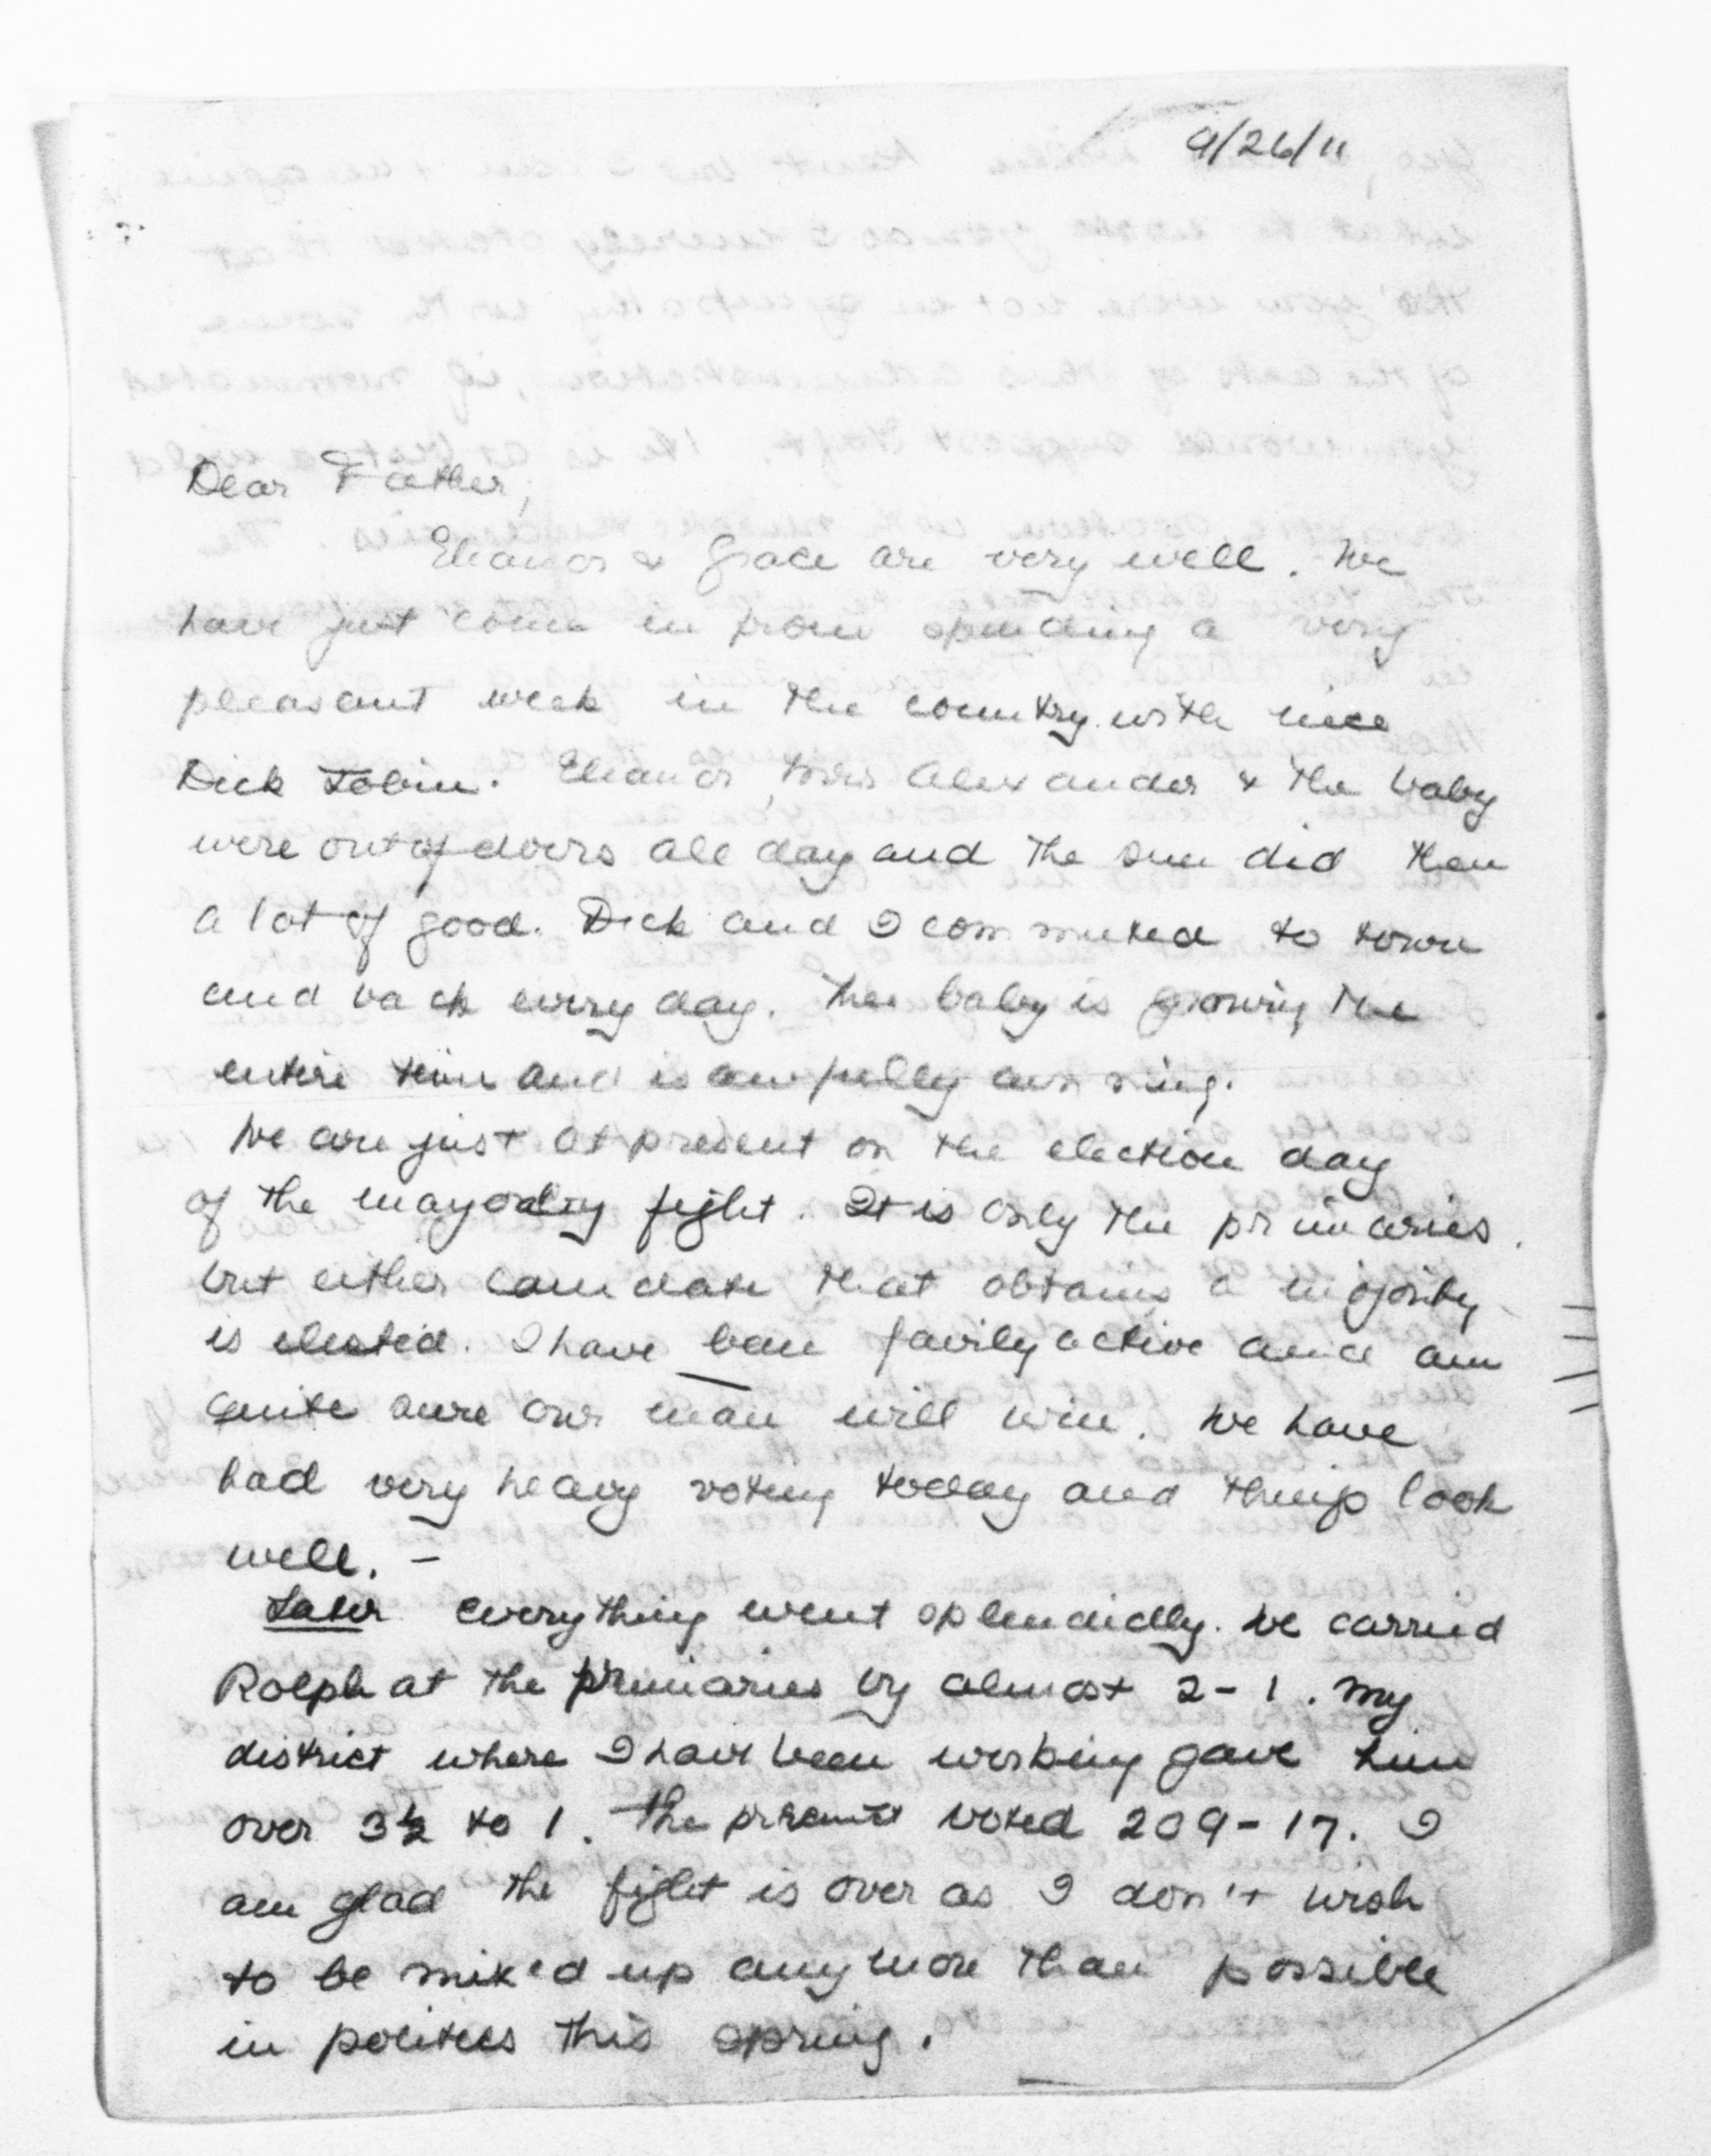 9/26/11
Dear Father,
Eleanor & Grace are very well. We
have just come in from spending a very
pleasant week in the country with nice
Dick Tobin. Eleanor, Mrs Alexander & the baby
were out of doors all day and the sun did them
a lot of good. Dick and I commuted to town
and back every day. The baby is growing the
entire time and is awfully cunning.
We are just at present on the election day
of the mayoralty fight. It is only the primaries
but either candate that obtains a majority
is elected. I have been fairly active and am
quite sure our man will win. We have
had very heavy voting today and things look
well. –
Later everything went splendidly. We carried
Rolph at the primaries by almost 2-1. My
district where I have been working gave him
over 3½ to 1. The precinct voted 209-17. I
am glad the fight is over as I don't wish
to be mixed up anymore than possible
in politics this spring.